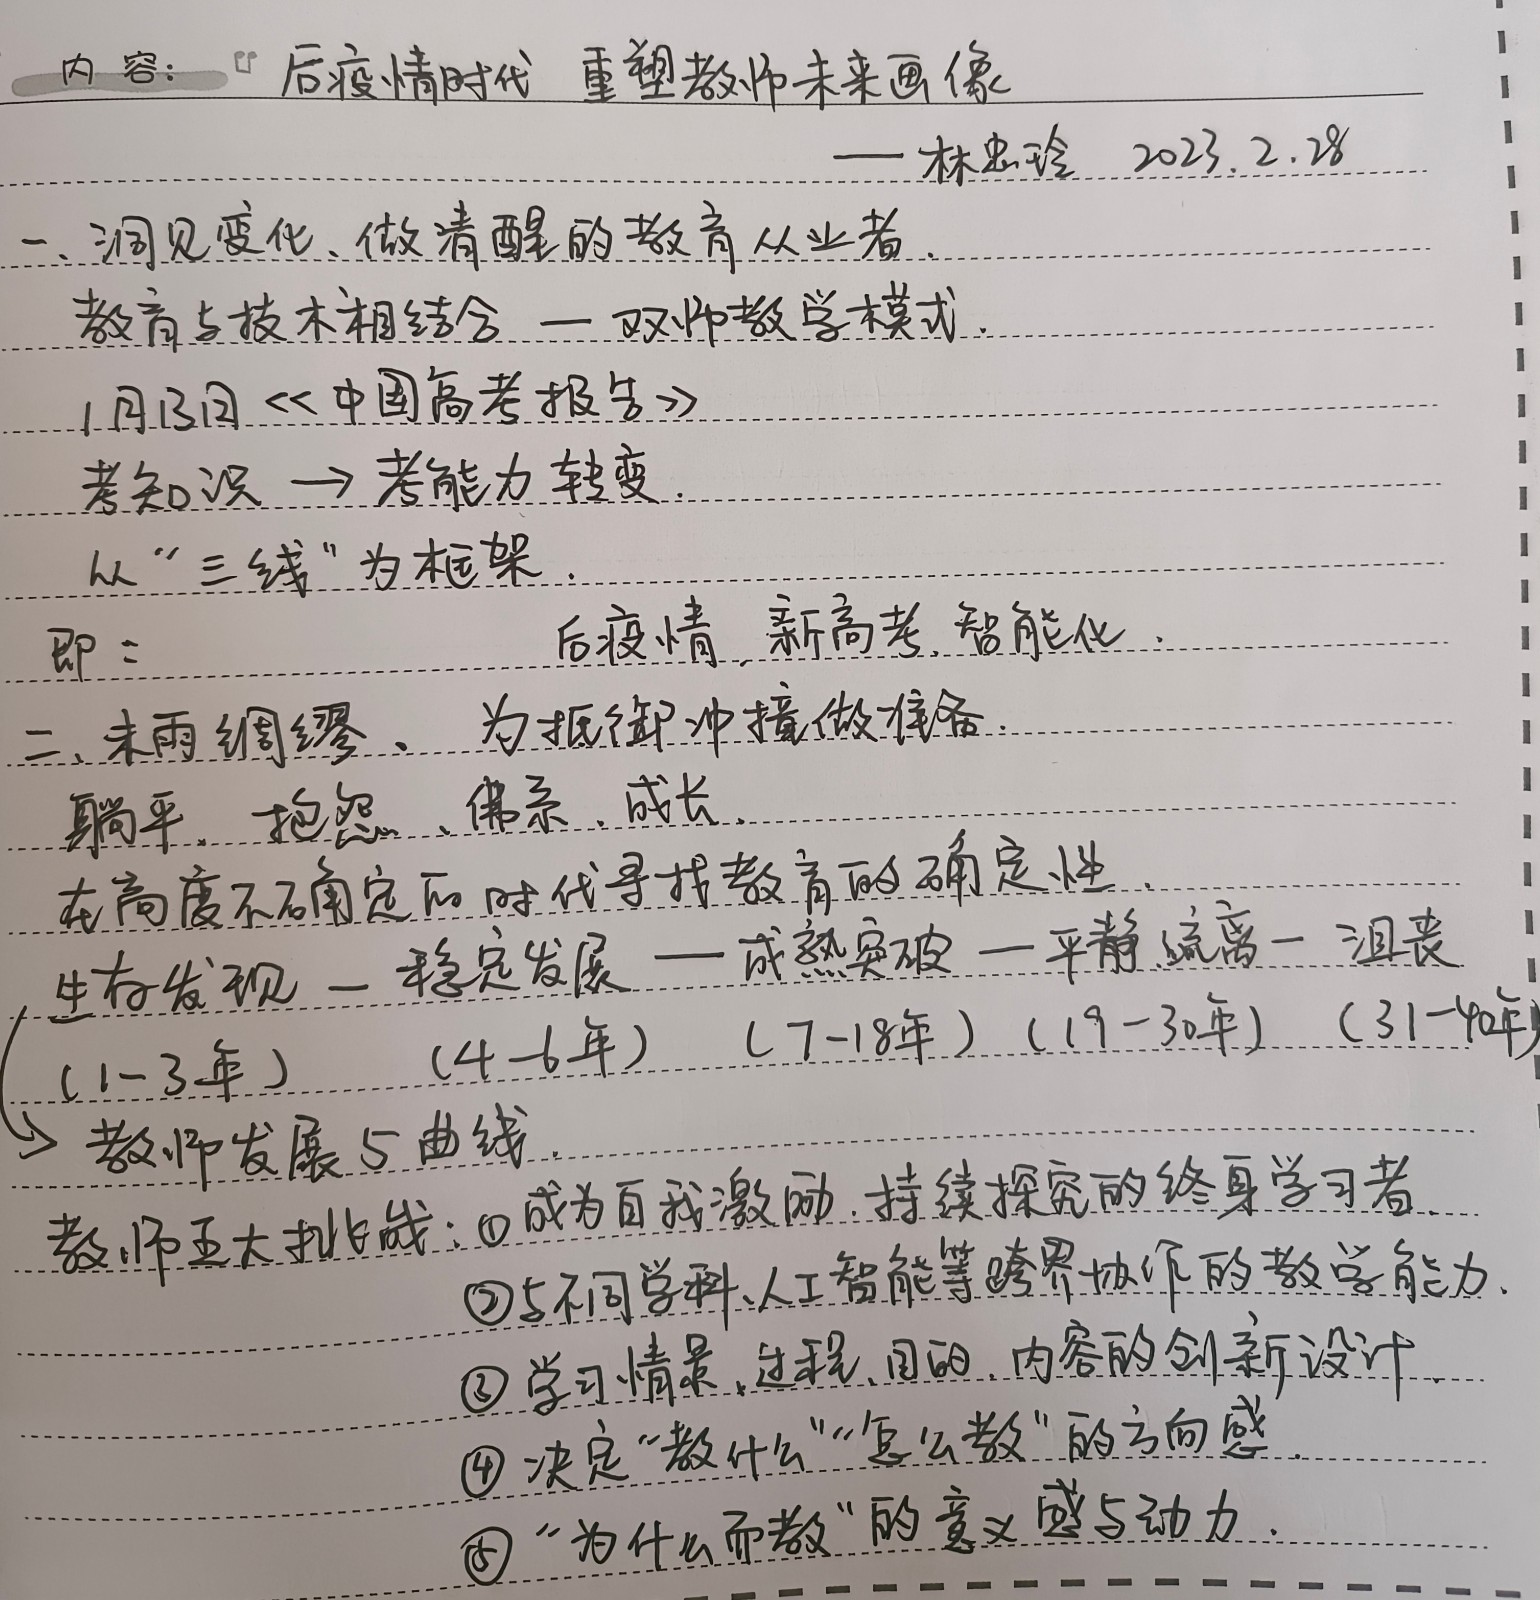 内容：『后疫情时代 重塑教师未来画像
—— 林忠玲 2023.2.28
一、洞见变化、做清醒的教育从业者.
教育与技术相结合 — 双师教学模式.
1月13日《中国高考报告》
考知识 → 考能力 转变.
从“三线”为框架.
即： 后疫情、新高考、智能化.
二、未雨绸缪、为抵御冲撞做准备.
躺平、抱怨、佛系、成长.
在高度不确定的时代寻找教育的确定性.
生存发现 — 稳定发展 — 成熟突破 — 平静疏离 — 沮丧
(1-3年) (4-6年) (7-18年) (19-30年) (31-40年)
教师发展5曲线.
教师五大挑战：①成为自我激励、持续探究的终身学习者.
②与不同学科、人工智能等跨界协作的教学能力.
③学习情景、过程、目的、内容的创新设计.
④决定“教什么”“怎么教”的方向感.
⑤“为什么而教”的意义感与动力.